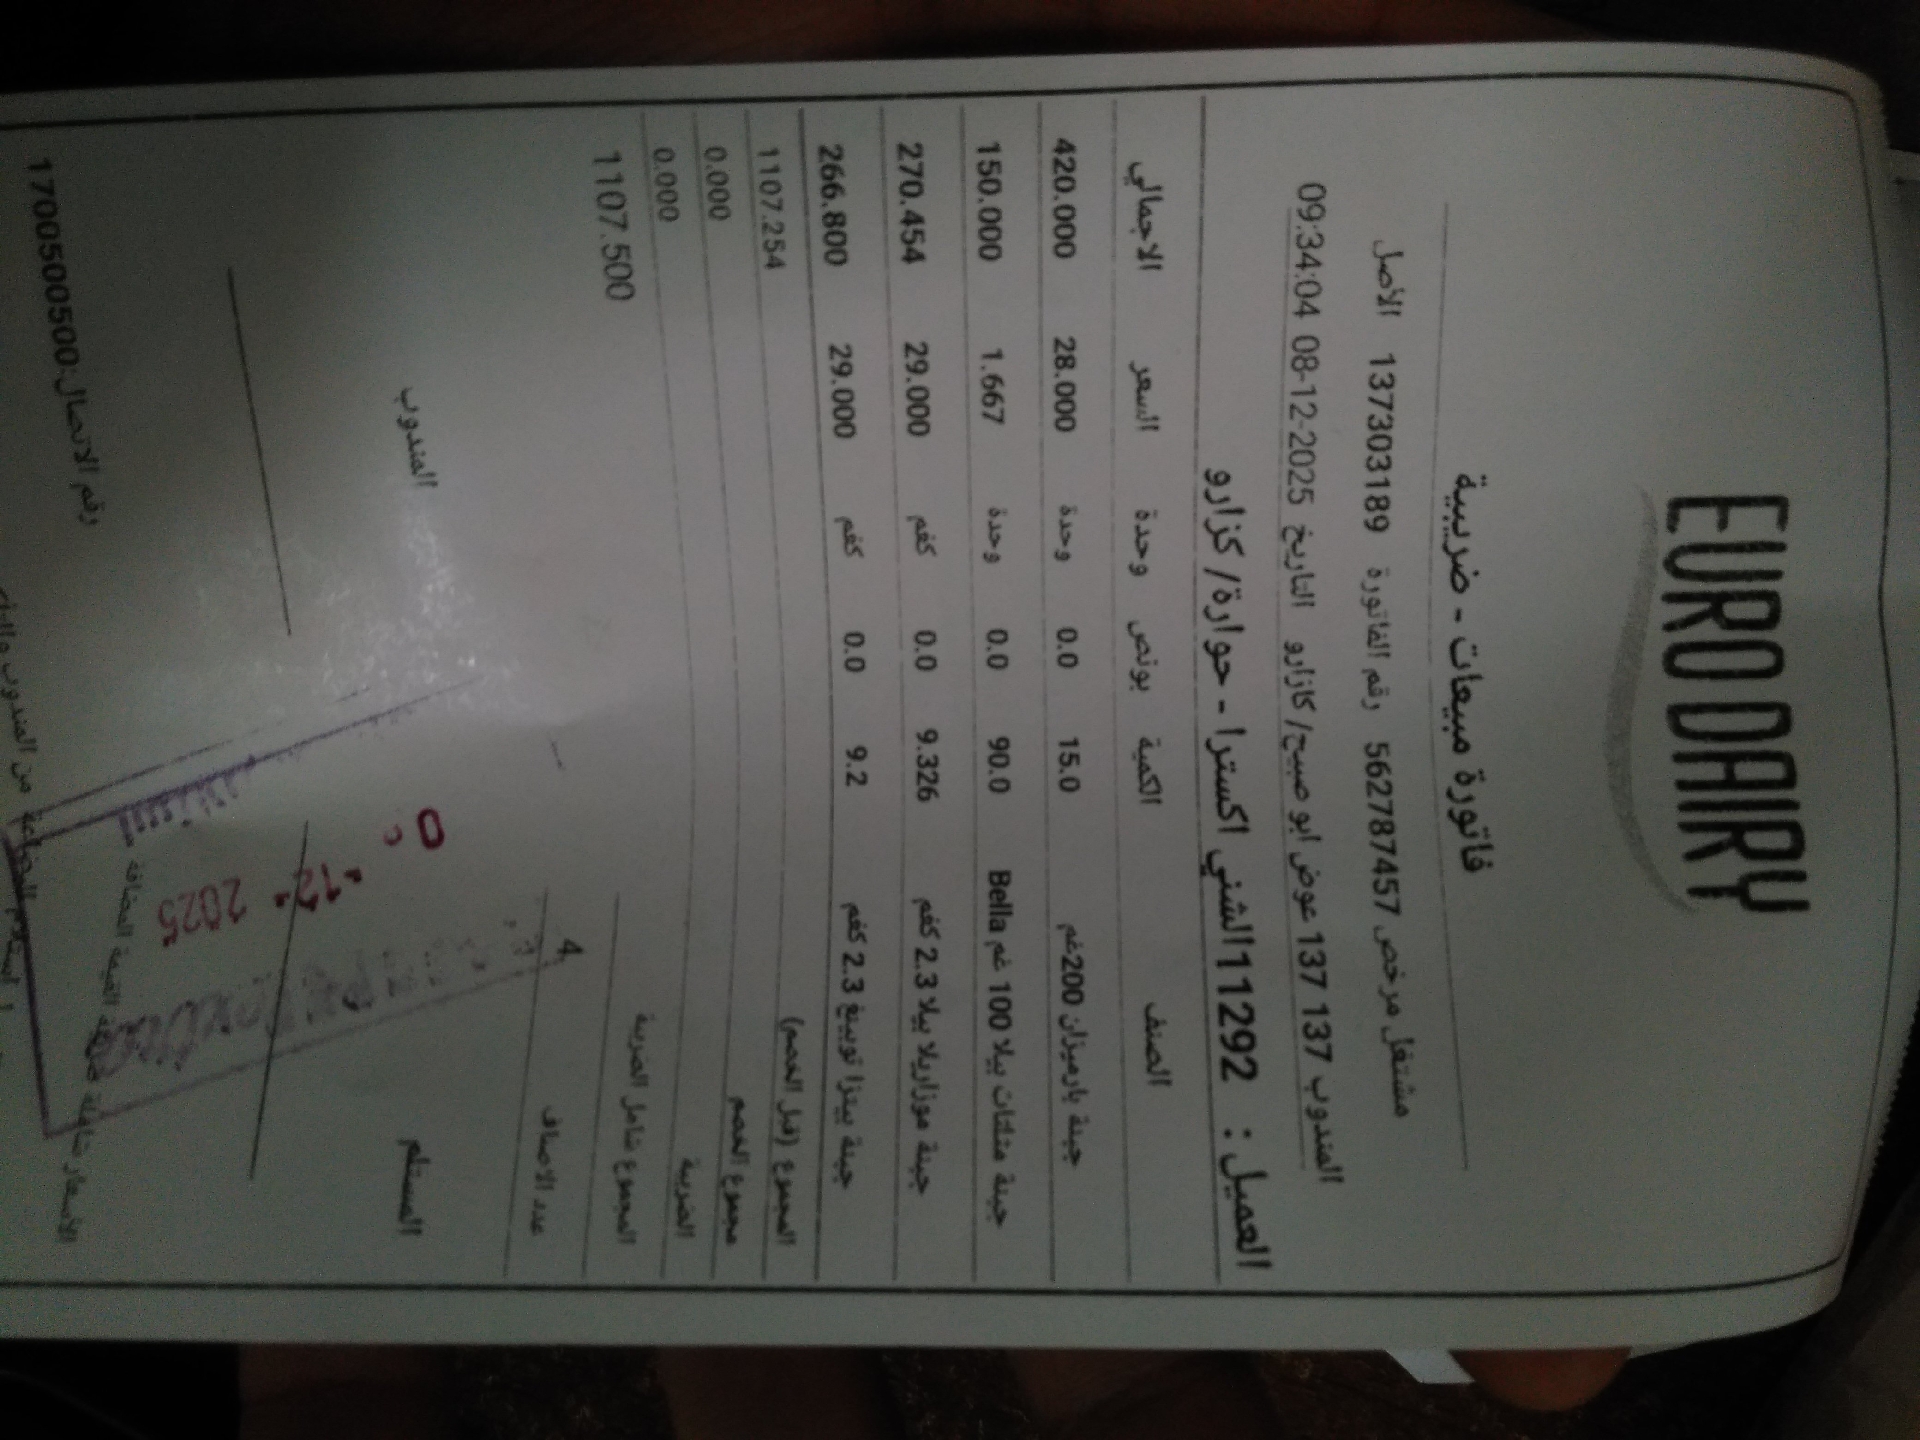 EURO DAIRY
فاتورة مبيعات - ضريبية
مشتغل مرخص 562787457 رقم الفاتورة 137303189 الأصل
المندوب 137 137 عوض ابو صبيح/ كازارو التاريخ 2025-12-08 09:34:04
العميل : 11292الشني اكسترا - حوارة/ كزارو
الصنف الكمية بونص وحدة السعر الاجمالي
جبنة بارميزان 200غم 15.0 0.0 وحدة 28.000 420.000
جبنة مثلثات بيلا 100 غم Bella 90.0 0.0 وحدة 1.667 150.000
جبنة موزاريلا بيلا 2.3 كغم 9.326 0.0 كغم 29.000 270.454
جبنة بيتزا توبينغ 2.3 كغم 9.2 0.0 كغم 29.000 266.800
المجموع (قبل الخصم) 1107.254
مجموع الخصم 0.000
الضريبة 0.000
المجموع شامل الضريبة 1107.500
عدد الاصناف 4
المستلم المندوب
12. 2025
الأسعار شاملة ضريبة القيمة المضافة
رقم الاتصال:1700500500
من المندوب